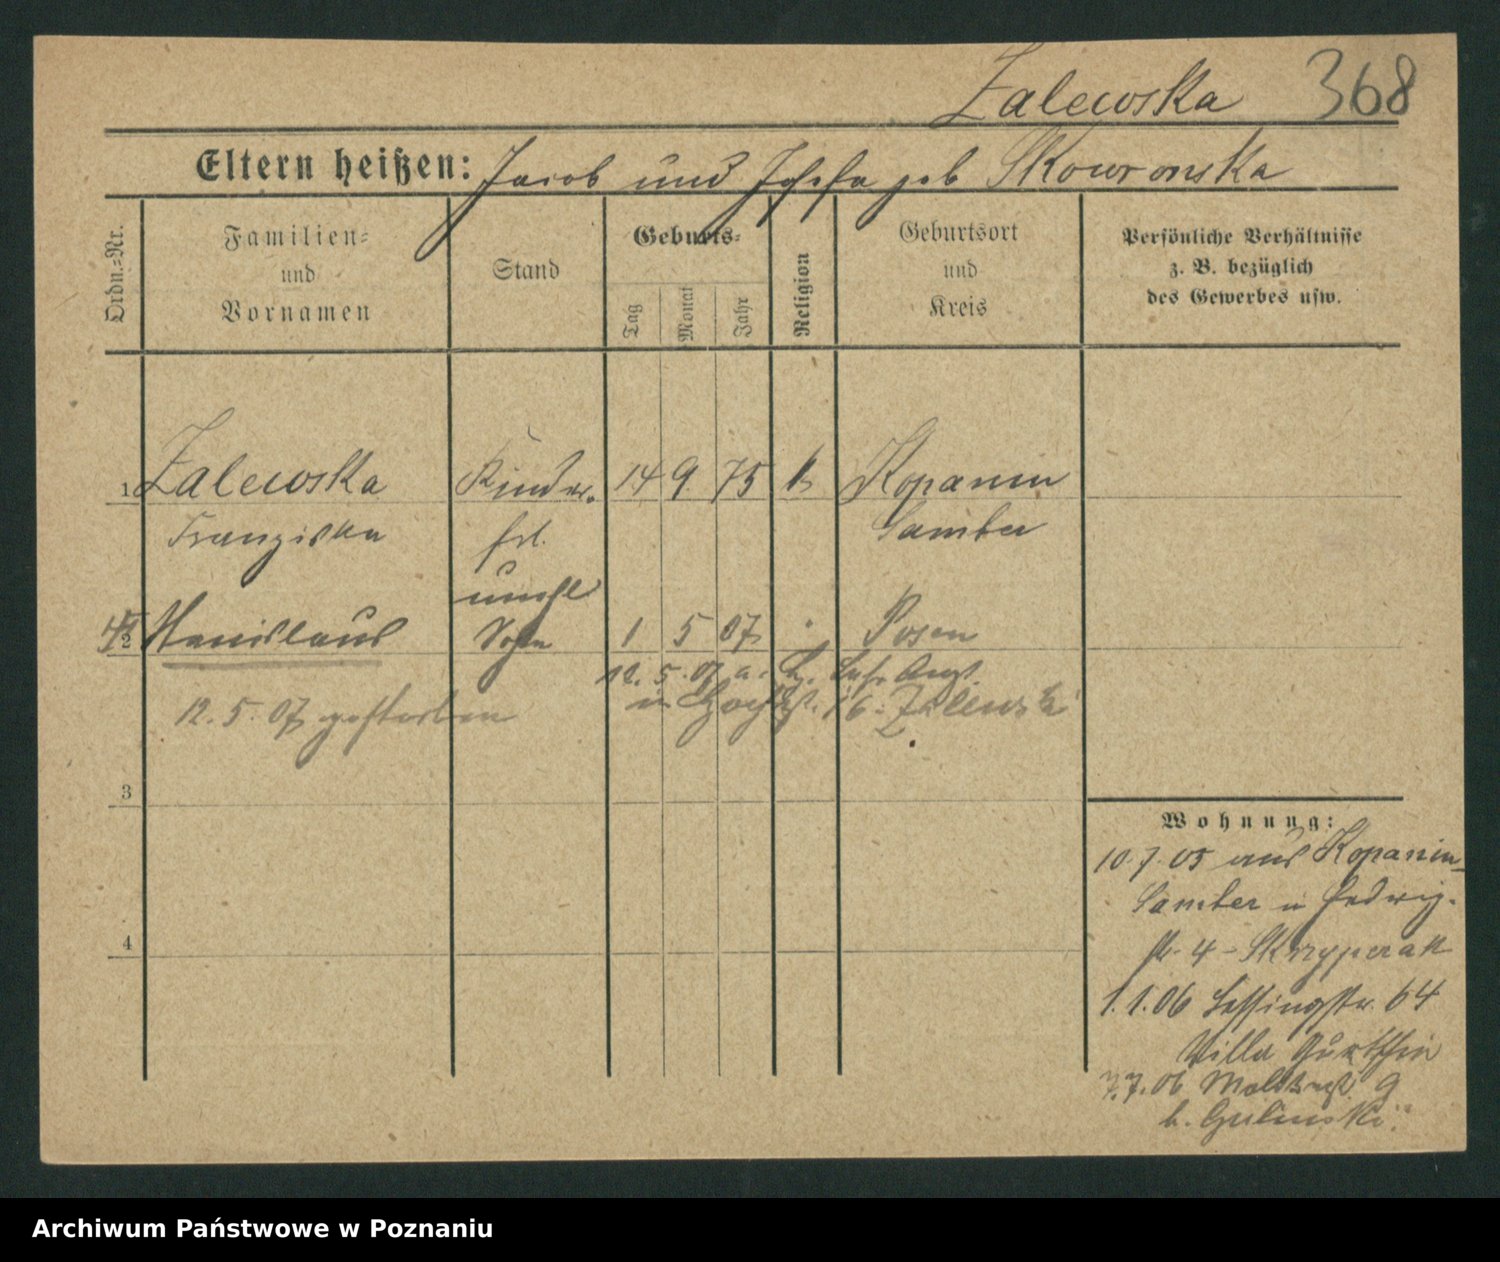 Zalewska 368
Eltern heißen: Jacob und Josefa geb Skowronska
Ordn.-Nr.
Familien- und Vornamen
Stand
Geburts-
Tag
Monat
Jahr
Religion
Geburtsort und Kreis
Persönliche Verhältnisse z. B. bezüglich des Gewerbes usw.
1 Zalewska Kinder- 14 9 75 k Kopanin
Franziska frl. Samter
unehl
2 Stanislaus Sohn 1 5 07 Posen
12. 5. 07 a.
12. 5. 07 gestorben in 16. Zalewski
3
4
Wohnung:
10.7.05 aus Kopanin-
Samter in Hedwig-
str. 4 - Skrzypczak
1.1.06 Lessingstr. 64
Villa
7.7.06 Moltkestr. 9
b. Gulinski
Archiwum Państwowe w Poznaniu